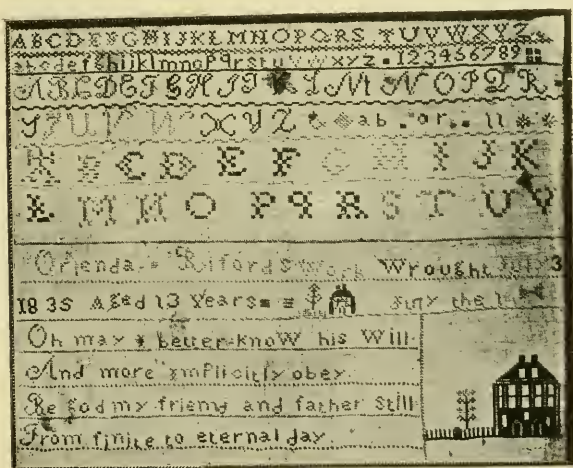 ABCDEFGHIJKLMNOPQRS TUVWXYZ
abcdefghijklmnopqrstuvwxyz 123456789
ABCDEFGHIJKLMNOPQR
STUVWXYZ & ab or 11
ABCDEFGHIJK
LMNOPQRSTUV
Orlenda Work Wrought July 3
1835 Aged 13 Years July the
Oh may I better know his Will
And more implicitly obey
Be God my friend and father still
From finite to eternal day